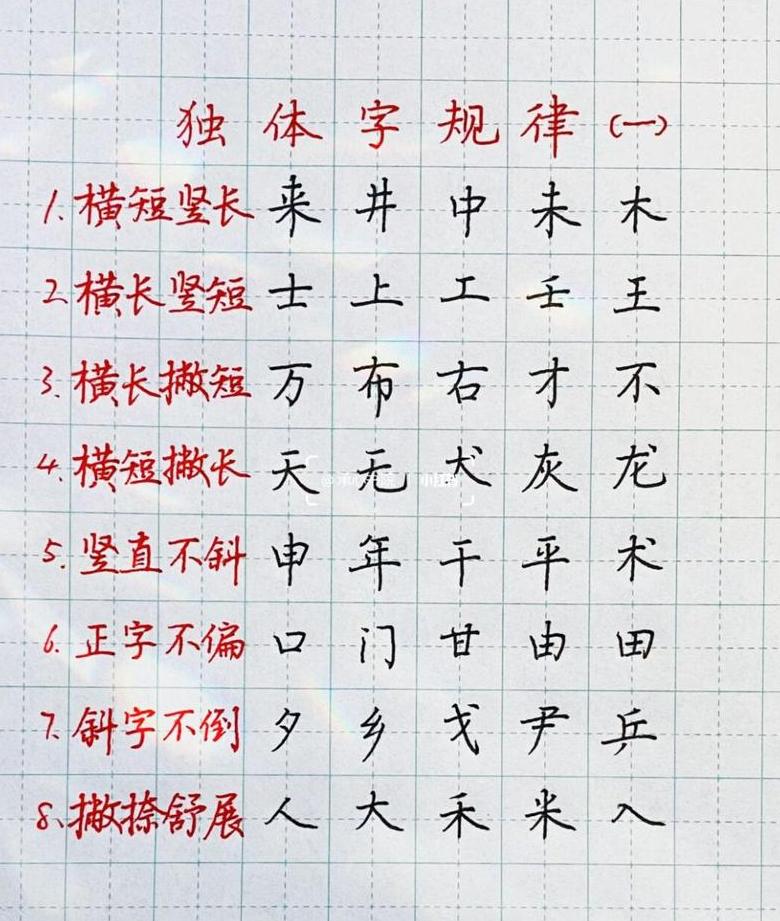 独体字规律(一)
1.横短竖长 来 井 中 未 木
2.横长竖短 士 上 工 壬 王
3.横长撇短 万 布 右 才 不
4.横短撇长 天 无 犬 灰 龙
5.竖直不斜 申 年 干 平 术
6.正字不偏 口 门 甘 由 田
7.斜字不倒 夕 乡 戈 尹 乒
8.撇捺舒展 人 大 禾 米 入